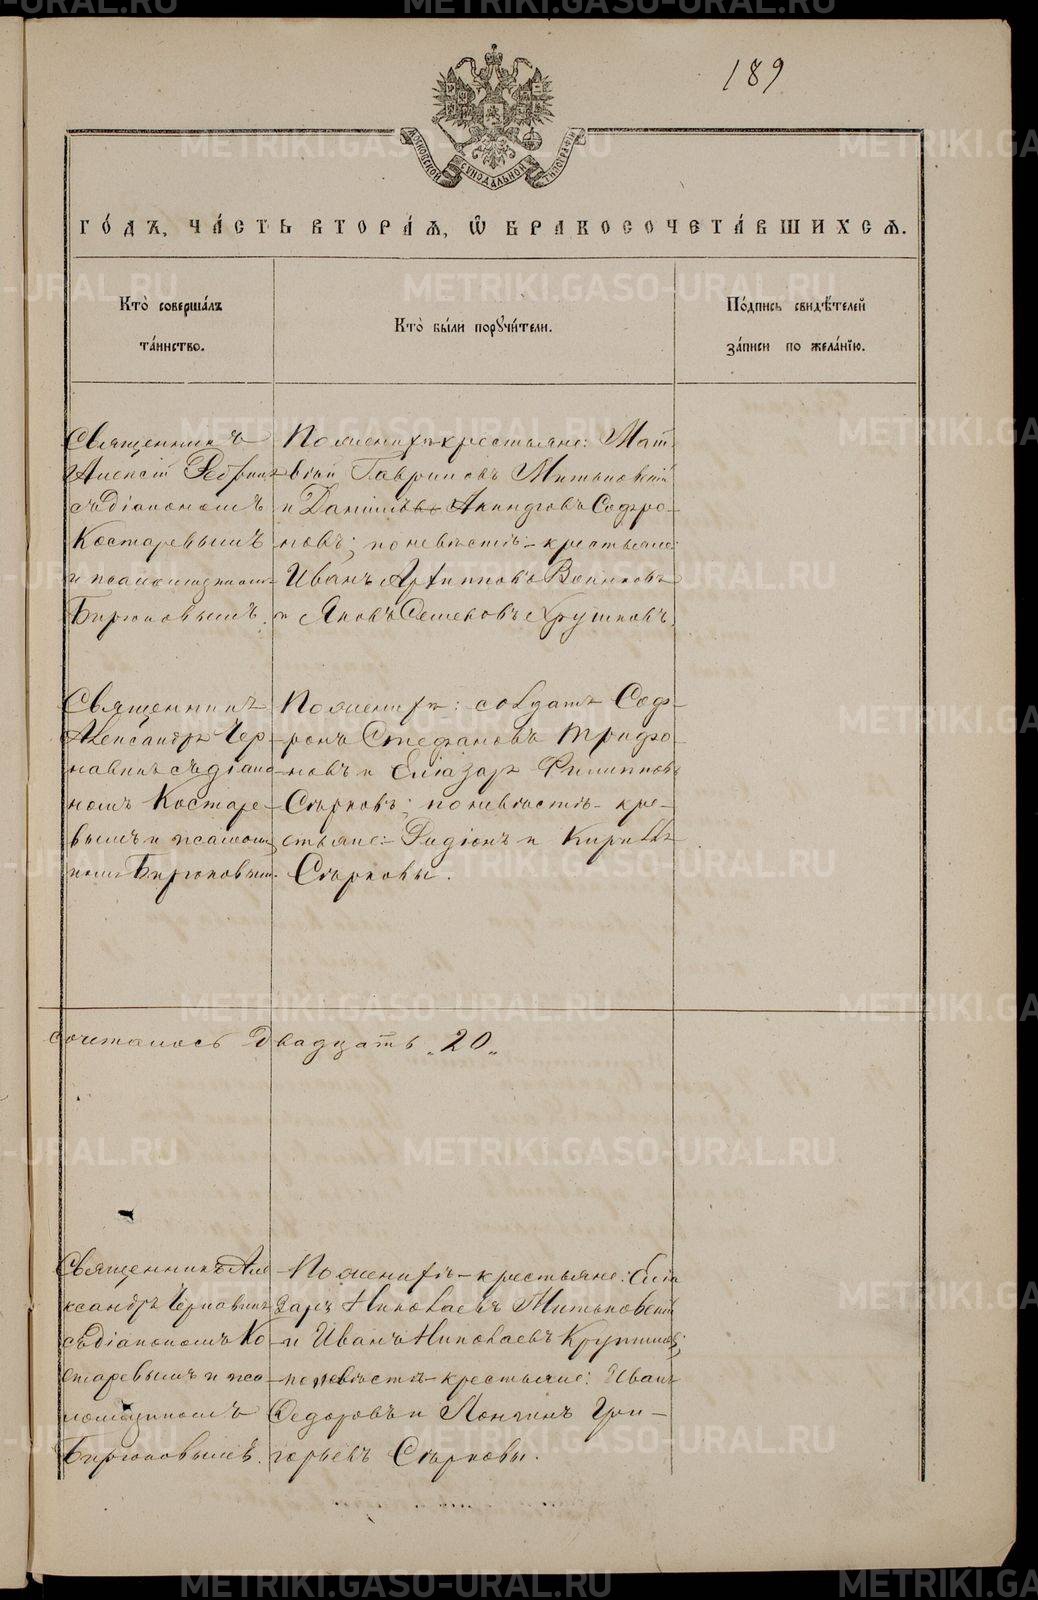 189
МОСКОВСКОЙ СУНОДАЛЬНОЙ ТИПОГРАФІИ
ГО́ДЪ, ЧА́СТЬ ВТОРА́Ѧ, Ѽ БРАКОСОЧЕТА́ВШИХСѦ.
Кто̀ соверша́лъ
та́инство.
Кто̀ бы́ли порꙋчи́тели.
По́дпись свидѣ́телей
за́писи по жела́нїю.
Священникъ
Алексій
съ діакономъ
Костаревымъ
и псаломщикомъ
Бирюковымъ.
По женихѣ крестьяне: Мат
вѣй Гавриловъ Митьковскій
и Даніилъ Акиндиновъ Софро-
новъ; по невѣстѣ - крестьяне:
Иванъ Архиповъ Воинковъ
и Яковъ Семеновъ Хрушковъ.
Священникъ
Александръ Чер-
навинъ съ діако
номъ Костаре-
вымъ и псаломщ
икомъ Бирюковым.
По женихѣ: солдатъ Соф-
ронъ Стефановъ Трифо-
новъ и Еліазаръ Филипповъ
Старковъ; по невѣстѣ - кре-
стьяне: Радіонъ и Кириллъ
Старковы.
сочеталось Двадцать „20„
Священникъ Але
ксандръ Чернавинъ
съ діакономъ Ко
старевымъ и пса
ломщикомъ
Бирюковымъ.
По женихѣ - крестьяне: Еліа
заръ Николаевъ Митьковскій
и Иванъ Николаевъ
по невѣстѣ крестьяне: Иванъ
Федоровъ и Лонгинъ Гри-
горьевъ Старковы.
METRIKI.GASO-URAL.RU